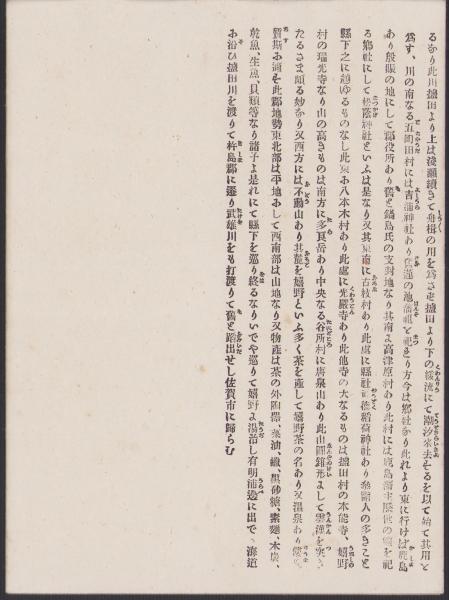 るなり此川塩田より上は淺瀬續きて舟楫の用を爲さゞ塩田より下の緩流にて潮汐來去そるを以て始て其用と
爲す、川の南なる五町田村には吉浦神社あり蓮池の藩祖と祀る方今は郷社なり此れより東に行けば鹿島
あり殷賑の地にして郡役所あり舊と鍋島氏の支封地なり其南よ高津原村あり此村には鹿島藩主歴世の靈を祀
る郷社にして松蔭神社といふは是なり又其東南に古枝村あり此處に縣社祐徳稲荷神社あり參詣人の多きこと
縣下之に超ゆるものなし此東よ八本木村あり此處に光嚴寺あり此他寺の大なるものは塩田村の本應寺、嬉野
村の瑞光寺なり山の高きものは南方に多良岳あり中央なる谷所村に唐泉山あり此山圓錐形よして雲漢を突
たるさま頗る妙なり又西方には不動山あり其麓を嬉野といふ多く茶を產して嬉野茶の名あり又温泉あり
質斯よ適そ此郡地勢東北部は平地よして西南部は山地なり又物產は茶の外陶器、菜油、蠟、黒砂糖、素麵、木炭、
乾魚、生魚、貝類等なり諸子よ是れにて縣下を巡り終るなりいでや巡りて嬉野よ沿ふし有明浦邊に出で、海道
よ沿ひ塩田川を渡りて杵島郡に還り武雄川をも打渡りて舊と踏出せし佐賀市に歸らむ